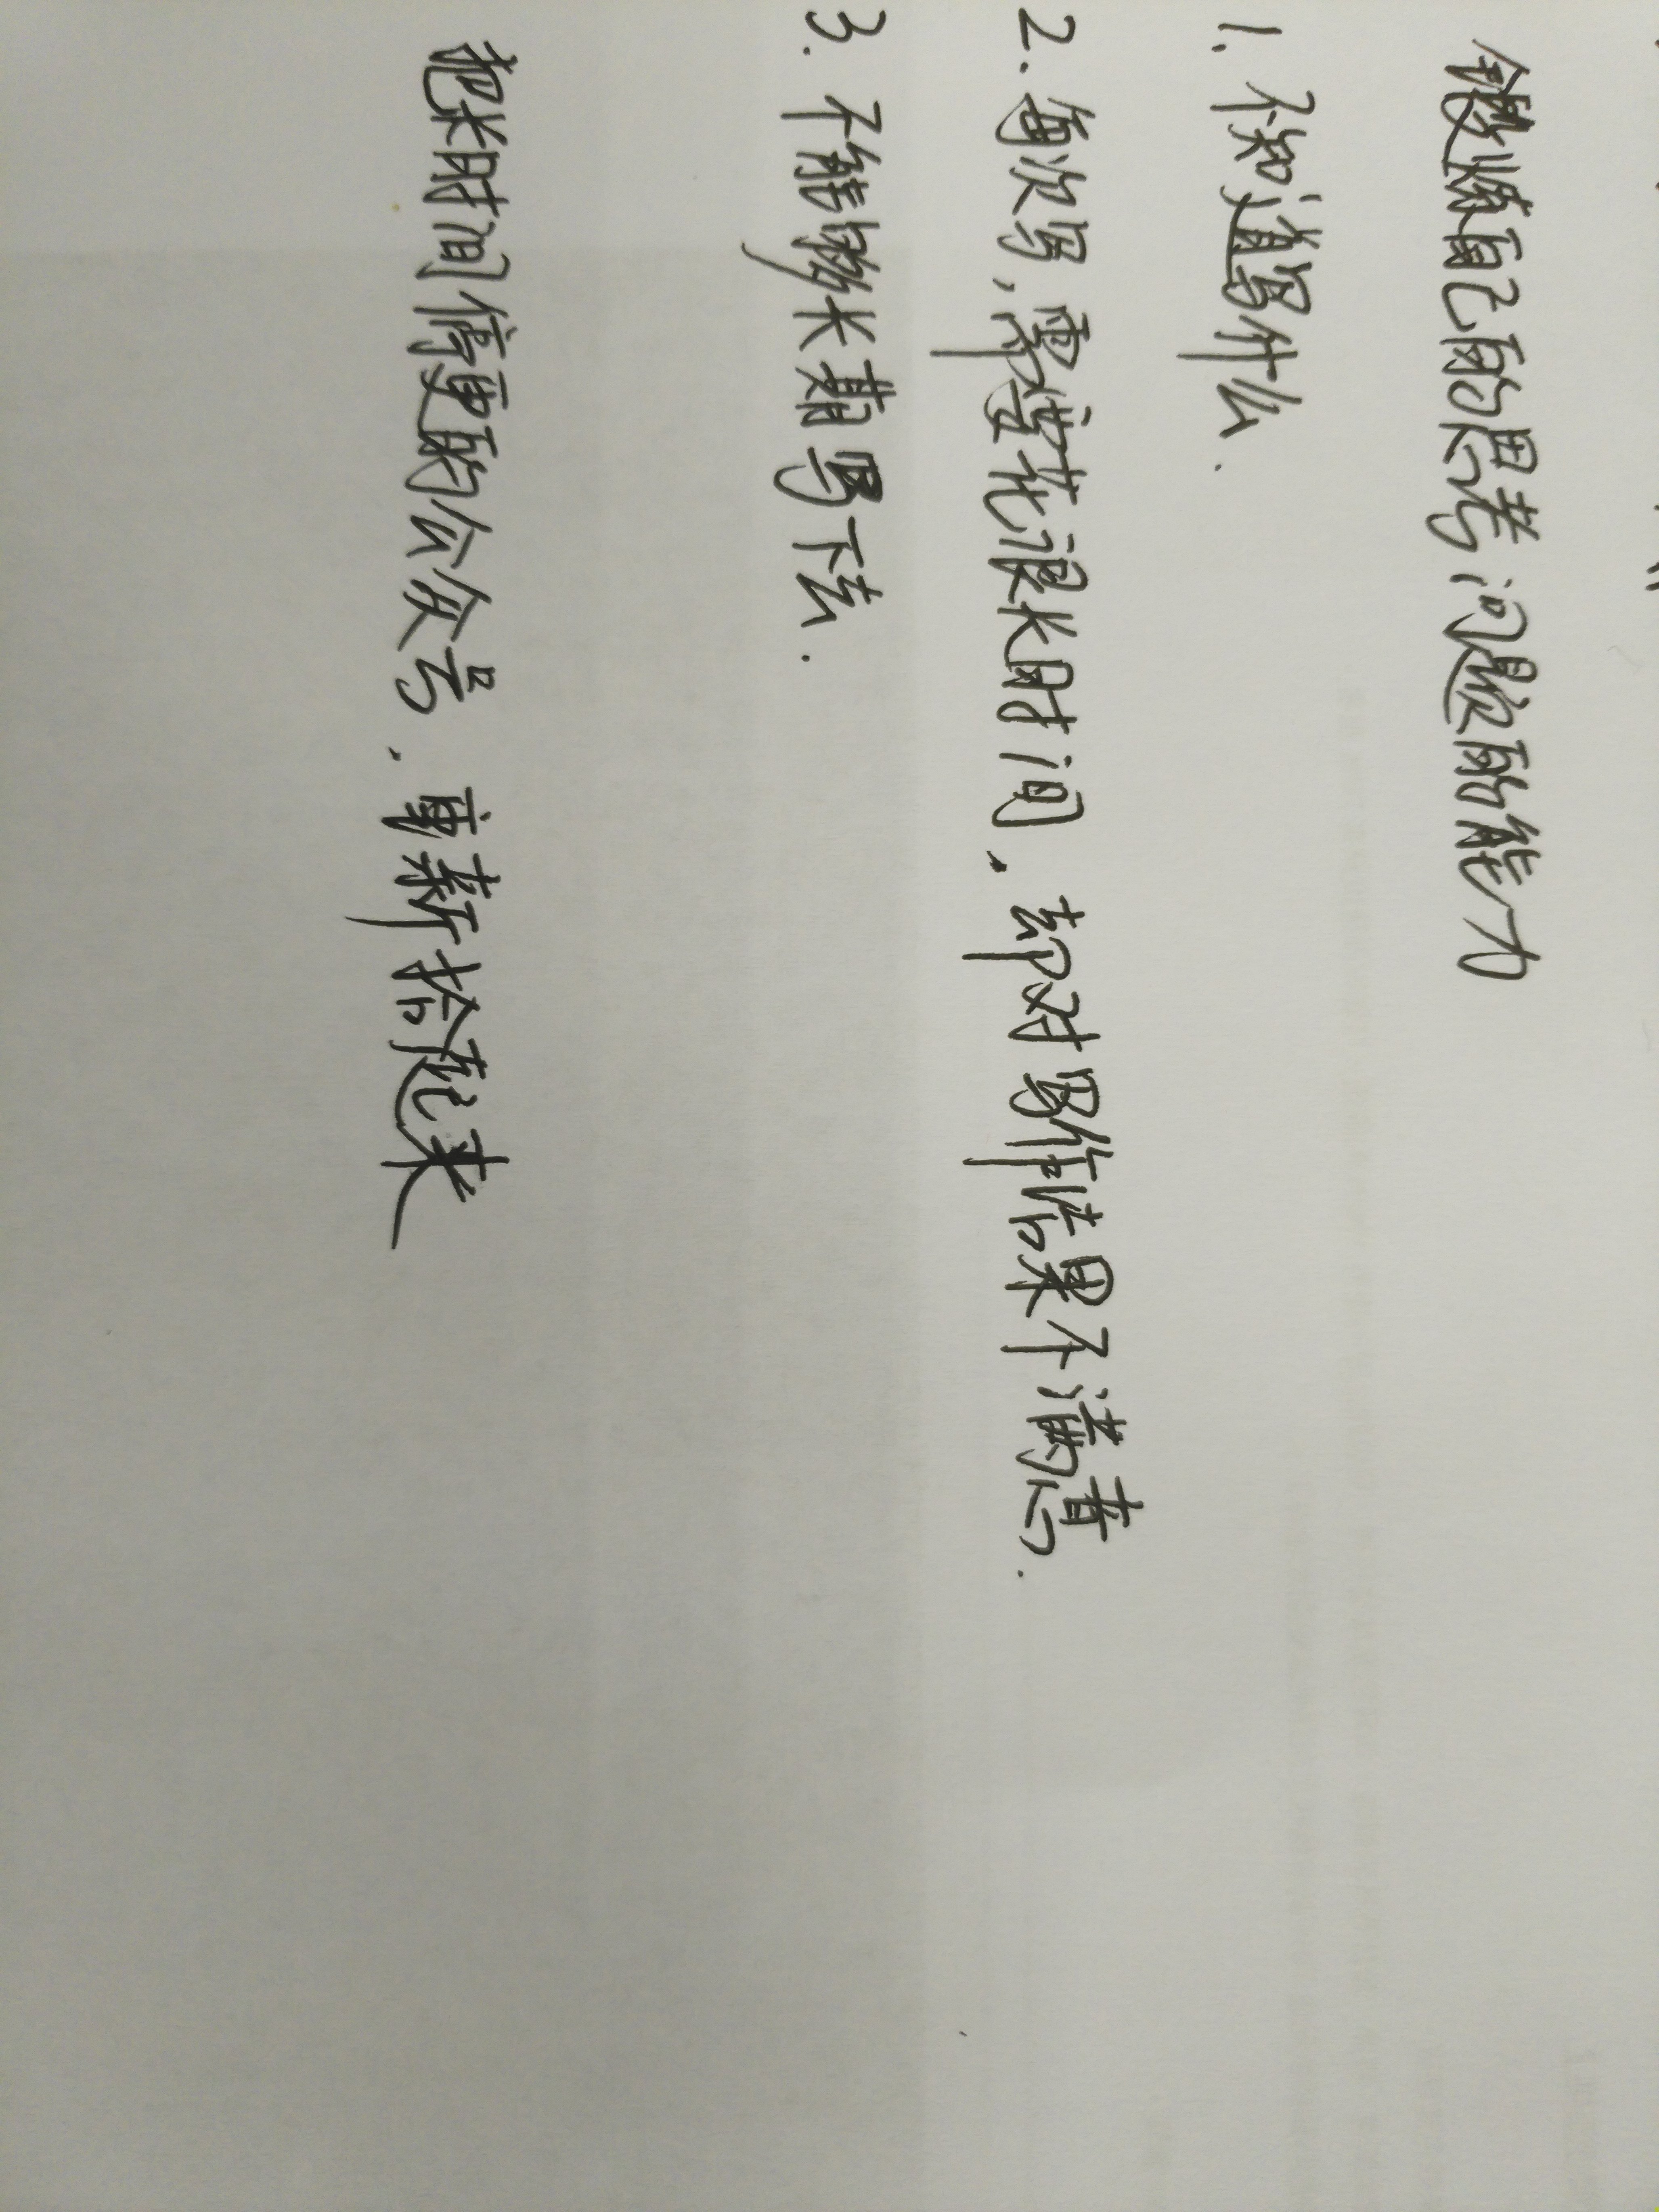 锻炼自己的思考问题的能力
1. 不知道写什么.
2. 每次写,需要花很长时间,却对写作结果不满意.
3. 不能够长期写下去.
把长时间停更的公众号,重新拾起来